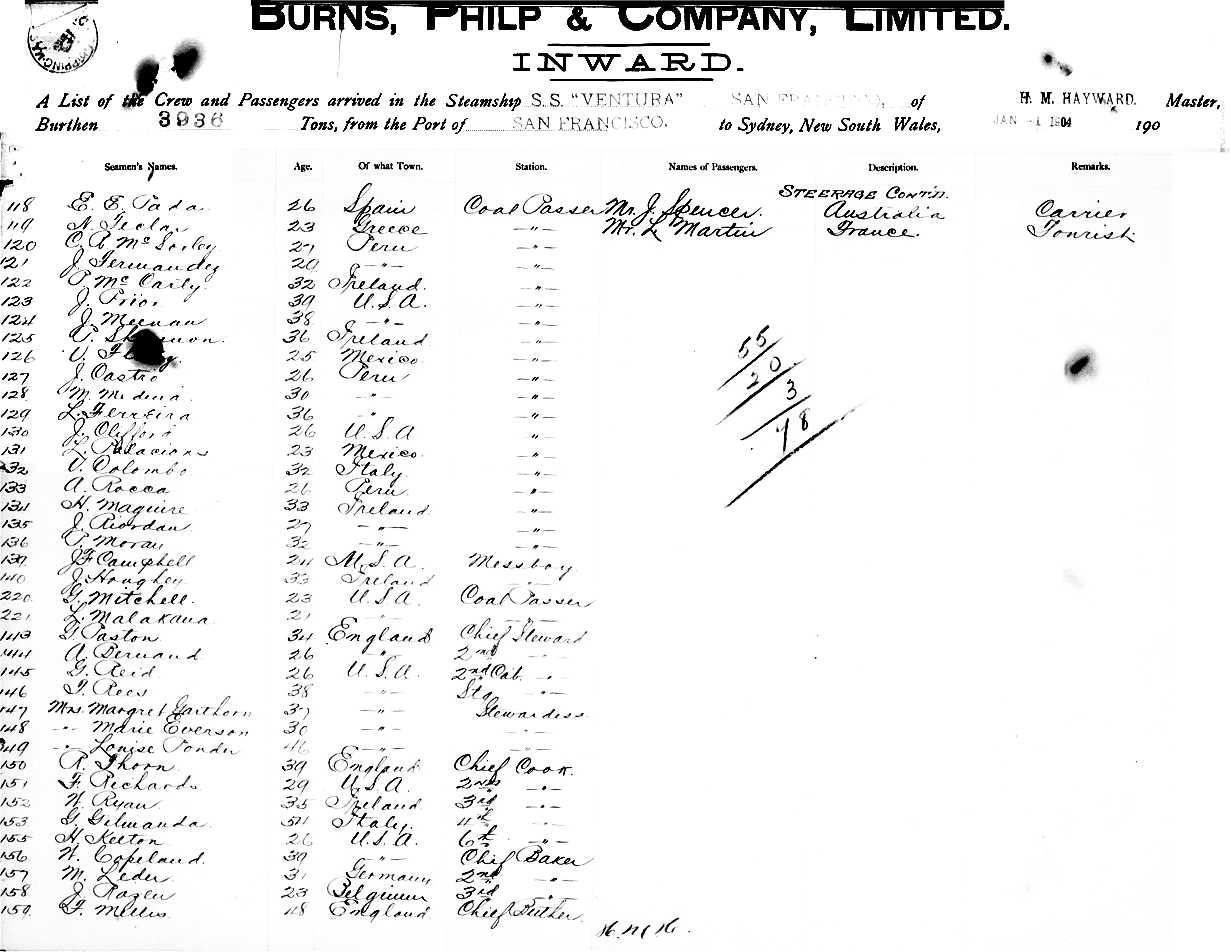 BURNS, PHILP & COMPANY, LIMITED.
INWARD.
A List of the Crew and Passengers arrived in the Steamship S.S. "VENTURA" SAN FRANCISCO, of H. M. HAYWARD. Master,
Burthen 3936 Tons, from the Port of SAN FRANCISCO. to Sydney, New South Wales, JAN -1 1904 190
Seamen's Names. Age. Of what Town. Station. Names of Passengers. Description. Remarks.
STEERAGE CONT'D.
118 E. E. Tada. 26 Spain Coal Passer Mr. J. Spencer. Australia Carrier
119 N. Teclar 23 Greece -"- Mr. L Martin France. Tourist
120 C. A McSorley 27 Peru -"-
121 J. Fernandez 29 -"- -"-
122 P. McCarty. 32 Ireland. -"-
123 J. Prior 39 U.S.A. -"-
124 J. Meenan 38 -"- -"-
125 36 Ireland -"-
126 V. 25 Mexico. -"-
127 J. Castro 26 Peru -"-
128 M. Medina 30 -"- -"-
129 L. Ferreira 36 -"- -"-
130 J. Clifford 26 U.S.A -"-
131 L. Palacions 23 Mexico. -"-
132 V. Colombo 32 Italy. -"-
133 A. Rocca 26 Peru. -"-
134 H. Maguire 33 Ireland. -"-
135 J. Riordan 27 -"- -"-
136 P. Moran 32 -"- -"-
139 J F Campbell 24 U.S.A. Messboy
140 J. Houghey 33 Ireland -"-
220 G. Mitchell. 23 U.S.A. Coal Passer
221 L. Malakana 21 -"- -"-
143 G. Paston 34 England Chief Steward
144 A. Bernand 26 -"- 2nd -"-
145 G. Reid 26 U.S.A. 2nd Cab. -"-
146 T. Rees 38 -"- Stg -"-
147 Mrs. Margret Garthorn 37 -"- Stewardess
148 -"- Marie Everson 30 -"- -"-
149 -"- Louise 46 -"- -"-
150 R. Thorn. 39 England Chief Cook.
151 F. Richards 29 U.S.A. 2nd -"-
152 W. Ryan. 35 Ireland 3rd -"-
153 G. Gilmanda. 54 Italy. 4th -"-
155 H. Keeton 26 U.S.A. 6th -"-
156 W. Copeland. 39 -"- Chief Baker
157 M. Leder 31 Germany 2nd -"-
158 J. 23 Belgium 3rd -"-
159 F. Mellis 48 England Chief Butcher.
55
20
3
78